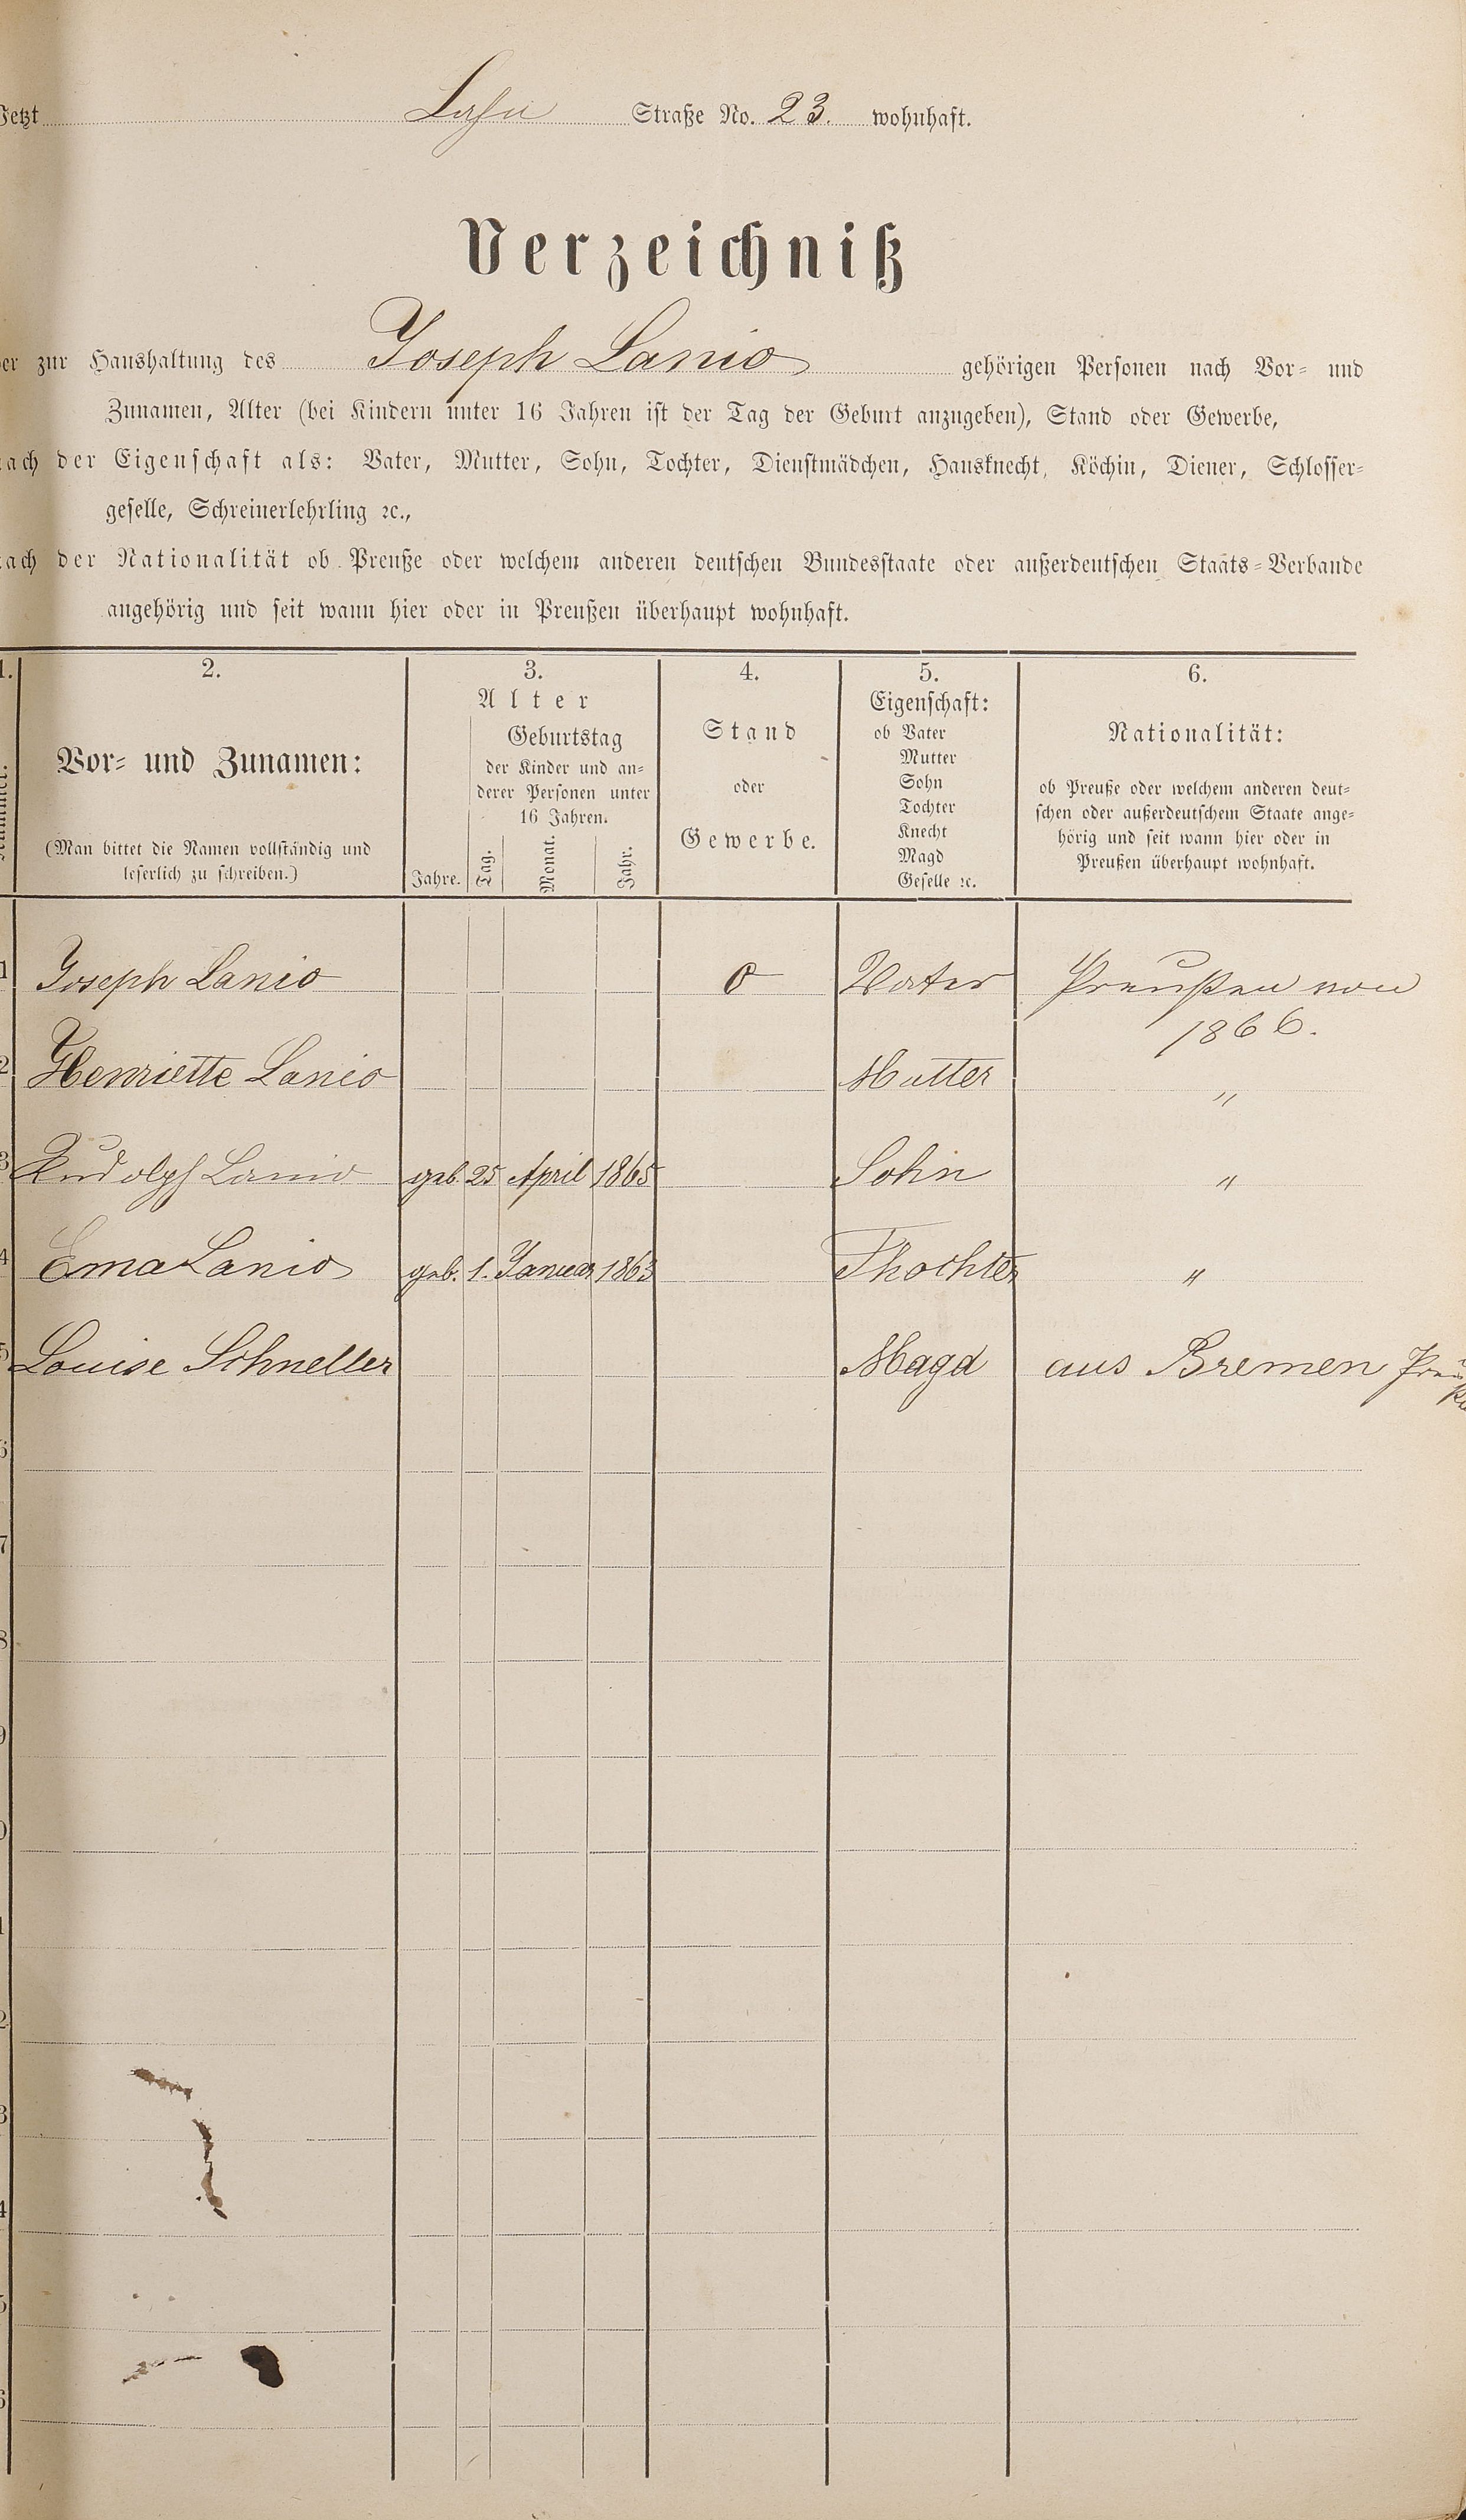 Jetzt Straße No. 23. wohnhaft.
Verzeichniß
der zur Haushaltung des Joseph Lanio gehörigen Personen nach Vor- und
Zunamen, Alter (bei Kindern unter 16 Jahren ist der Tag der Geburt anzugeben), Stand oder Gewerbe,
nach der Eigenschaft als: Vater, Mutter, Sohn, Tochter, Dienstmädchen, Hausknecht, Köchin, Diener, Schlosser-
geselle, Schreinerlehrling ꝛc.,
nach der Nationalität ob Preuße oder welchem anderen deutschen Bundesstaate oder außerdeutschen Staats-Verbande
angehörig und seit wann hier oder in Preußen überhaupt wohnhaft.
1.
2.
Vor- und Zunamen:
(Man bittet die Namen vollständig und
leserlich zu schreiben.)
3.
Alter
Geburtstag
der Kinder und an-
derer Personen unter
16 Jahren.
Jahre. Tag. Monat. Jahr.
4.
Stand
oder
Gewerbe.
5.
Eigenschaft:
ob Vater
Mutter
Sohn
Tochter
Knecht
Magd
Geselle ꝛc.
6.
Nationalität:
ob Preuße oder welchem anderen deut-
schen oder außerdeutschem Staate ange-
hörig und seit wann hier oder in
Preußen überhaupt wohnhaft.
1 Joseph Lanio 0 Vater Preußen von
1866.
2 Henriette Lanio Mutter "
3 Rudolph Lanio geb. 25 April 1865 Sohn "
4 Ema Lanio geb. 1. Januar 1863 Thochter "
5 Louise Schneller Magd aus Bremen
6
7
8
9
0
1
2
3
4
5
6